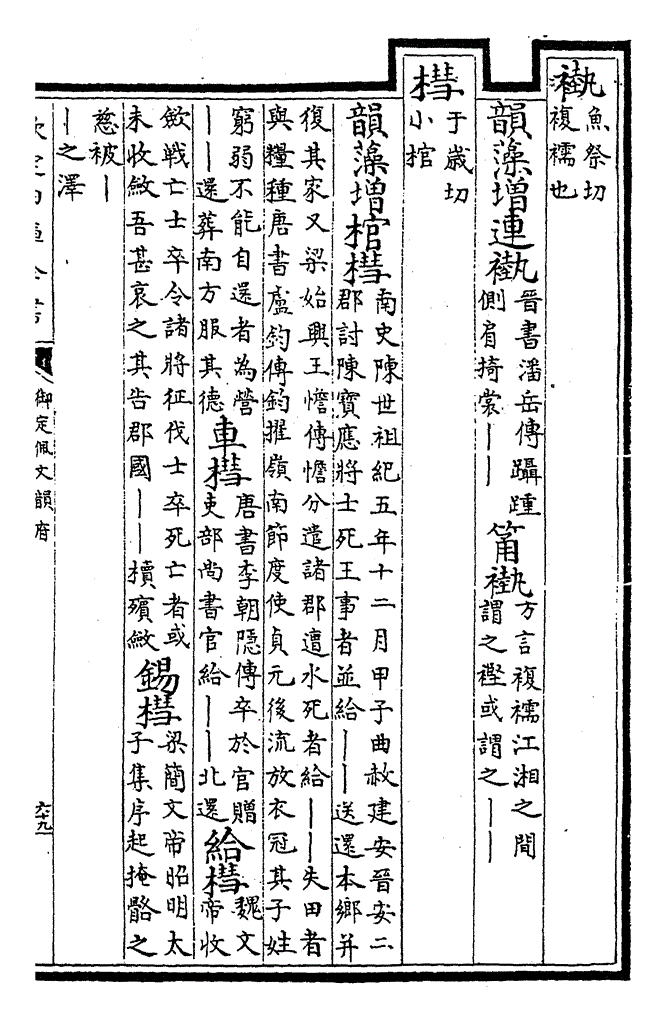 褹
魚祭切
複襦也
韻藻增連褹
晉書潘岳傳躡踵
側肩掎裳｜｜
筩褹
方言複襦江湘之間
謂之或謂之｜｜
槥
于歲切
小棺
韻藻增棺槥
南史陳世祖紀五年十二月甲子曲赦建安晉安二
郡討陳寶應將士死王事者並給｜｜送還本鄉并
復其家又梁始興王憺傳憺分遣諸郡遭水死者給｜｜失田者
與糧種唐書盧鈞傳鈞擢嶺南節度使貞元後流放衣冠其子姓
窮弱不能自還者為營
｜｜還葬南方服其德
車槥
唐書李朝隱傳卒於官贈
吏部尚書官給｜｜北還
給槥
魏文
帝收
斂戰亡士卒令諸將征伐士卒死亡者或
未收斂吾甚哀之其告郡國｜｜櫝殯斂
錫槥
梁簡文帝昭明太
子集序起掩骼之
慈被｜
｜之澤
欽定四庫全書
御定佩文韻府
六十九